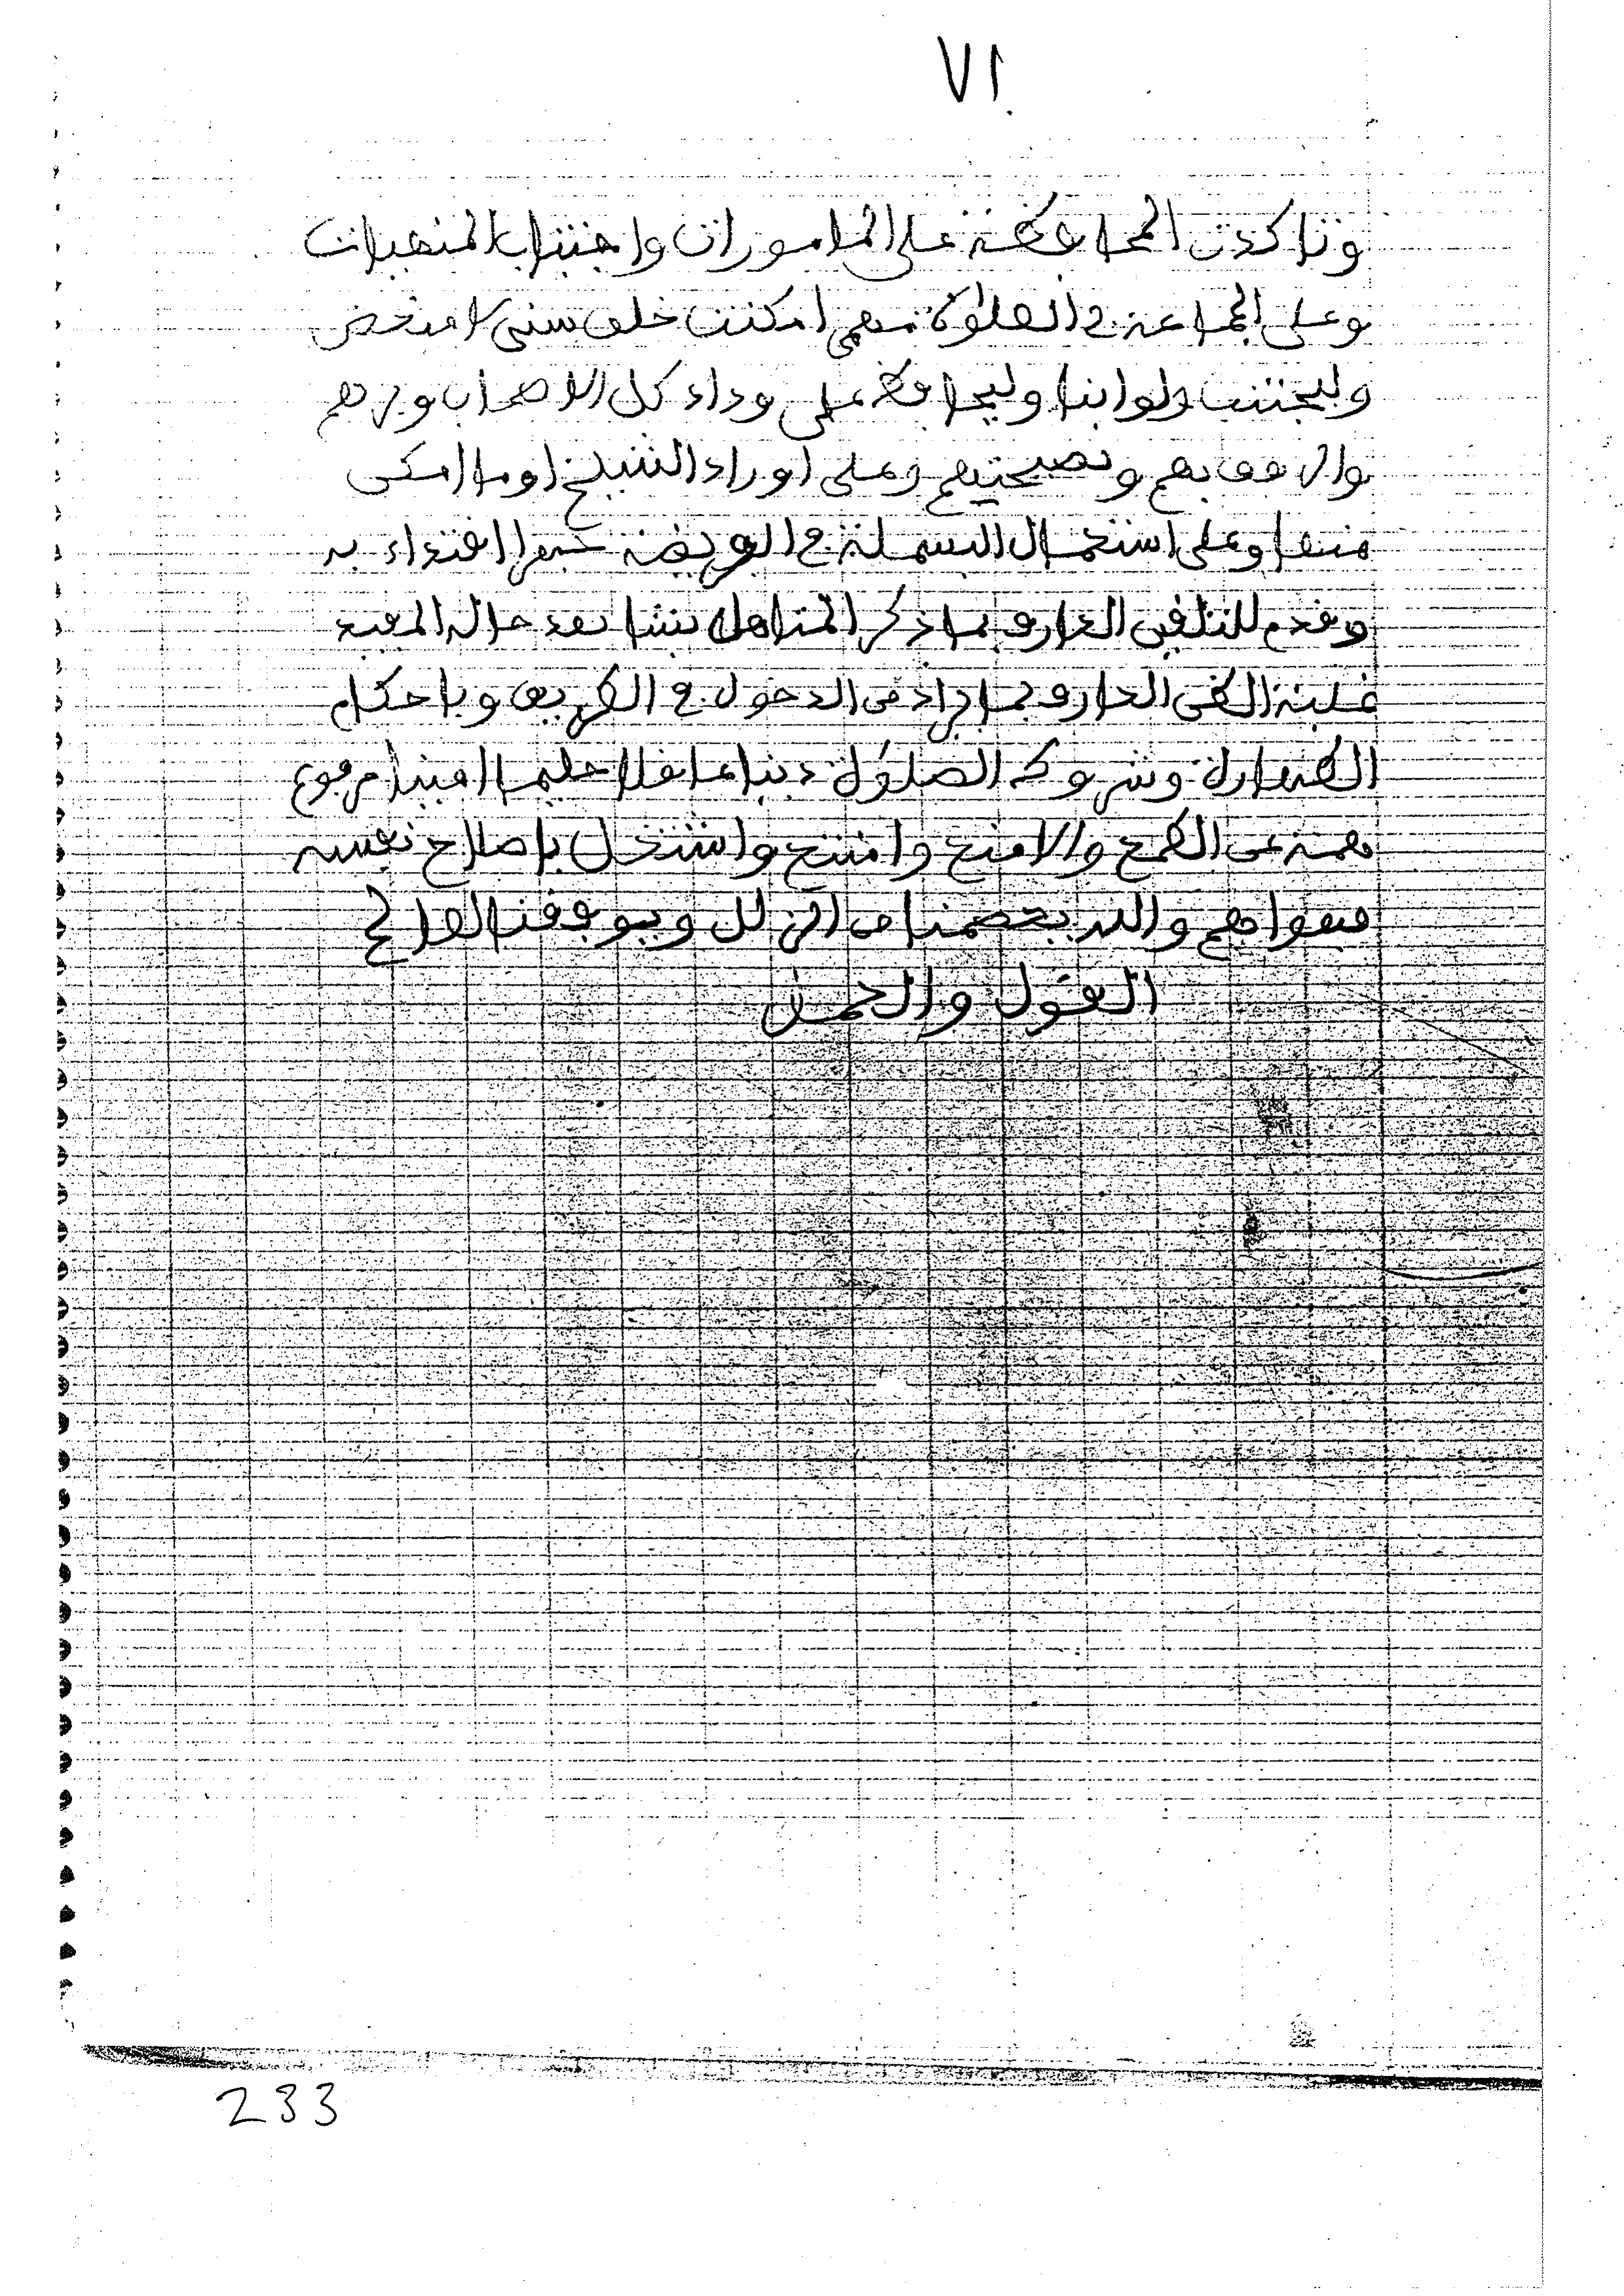 ٧١
وتاكدت المحافظة على المامورات واجتناب المنهيات
وعلى الجماعة في الصلوة مهمى امكنت خلف سني لا متخض
وليجتنب ولوابنا وليحافظ على وداد كل الاصحاب وبرهم
والرفق بهم ونصيحتهم وعلى اوراد الشيخ اوما امكن
منها وعلى استعمال البسملة في الفريضة جهرا اقتداء به
وقدم للتلقين العارف بما ذكر المتاهل بشاهد حاله المقيد
غلبة الظن العارف بما يراد من الدخول في الطريق وباحكام
الطهارة وشروط الصلوة دينا عاقلا حليما امينا مرفوع
همته عن الطمع والا منع وامتنع واشتغل بإصلاح نفسه
فبقواهم والله يعصمنا من الزلل ويوفقنا لصالح
القول والعمل
233